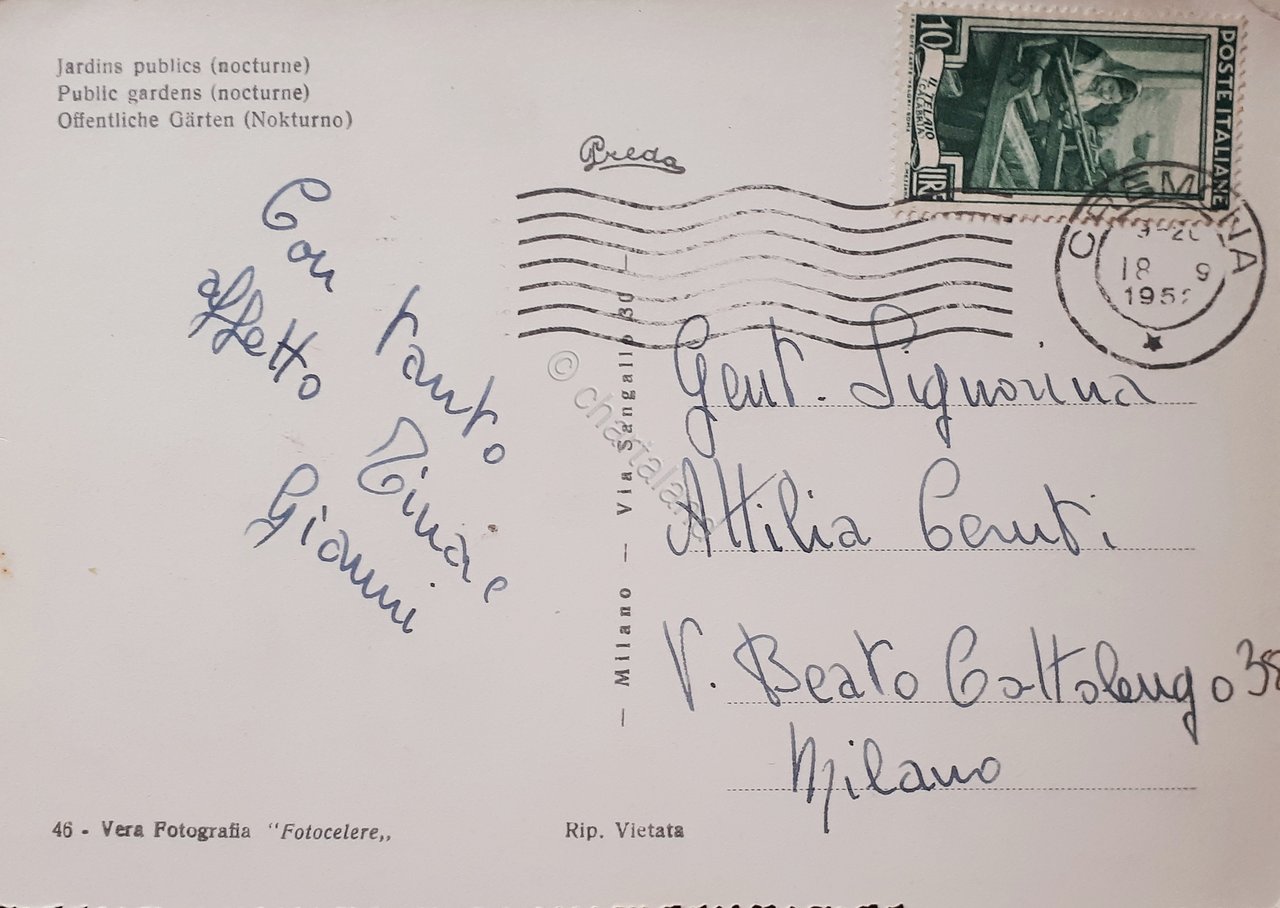 Jardins publics (nocturne)
Public gardens (nocturne)
Offentliche Gärten (Nokturno)
Preda
10
LIRE
IL TELAIO
CALABRIA
POSTE ITALIANE
CREMONA
18 9
195
Con tanto
affetto Tina e
Gianni
— Milano — Via Sangallo 30 —
© chartaland
Gent. Signorina
Attilia Ceruti
V. Beato Cottolengo 38
Milano
46 - Vera Fotografia "Fotocelere,,
Rip. Vietata